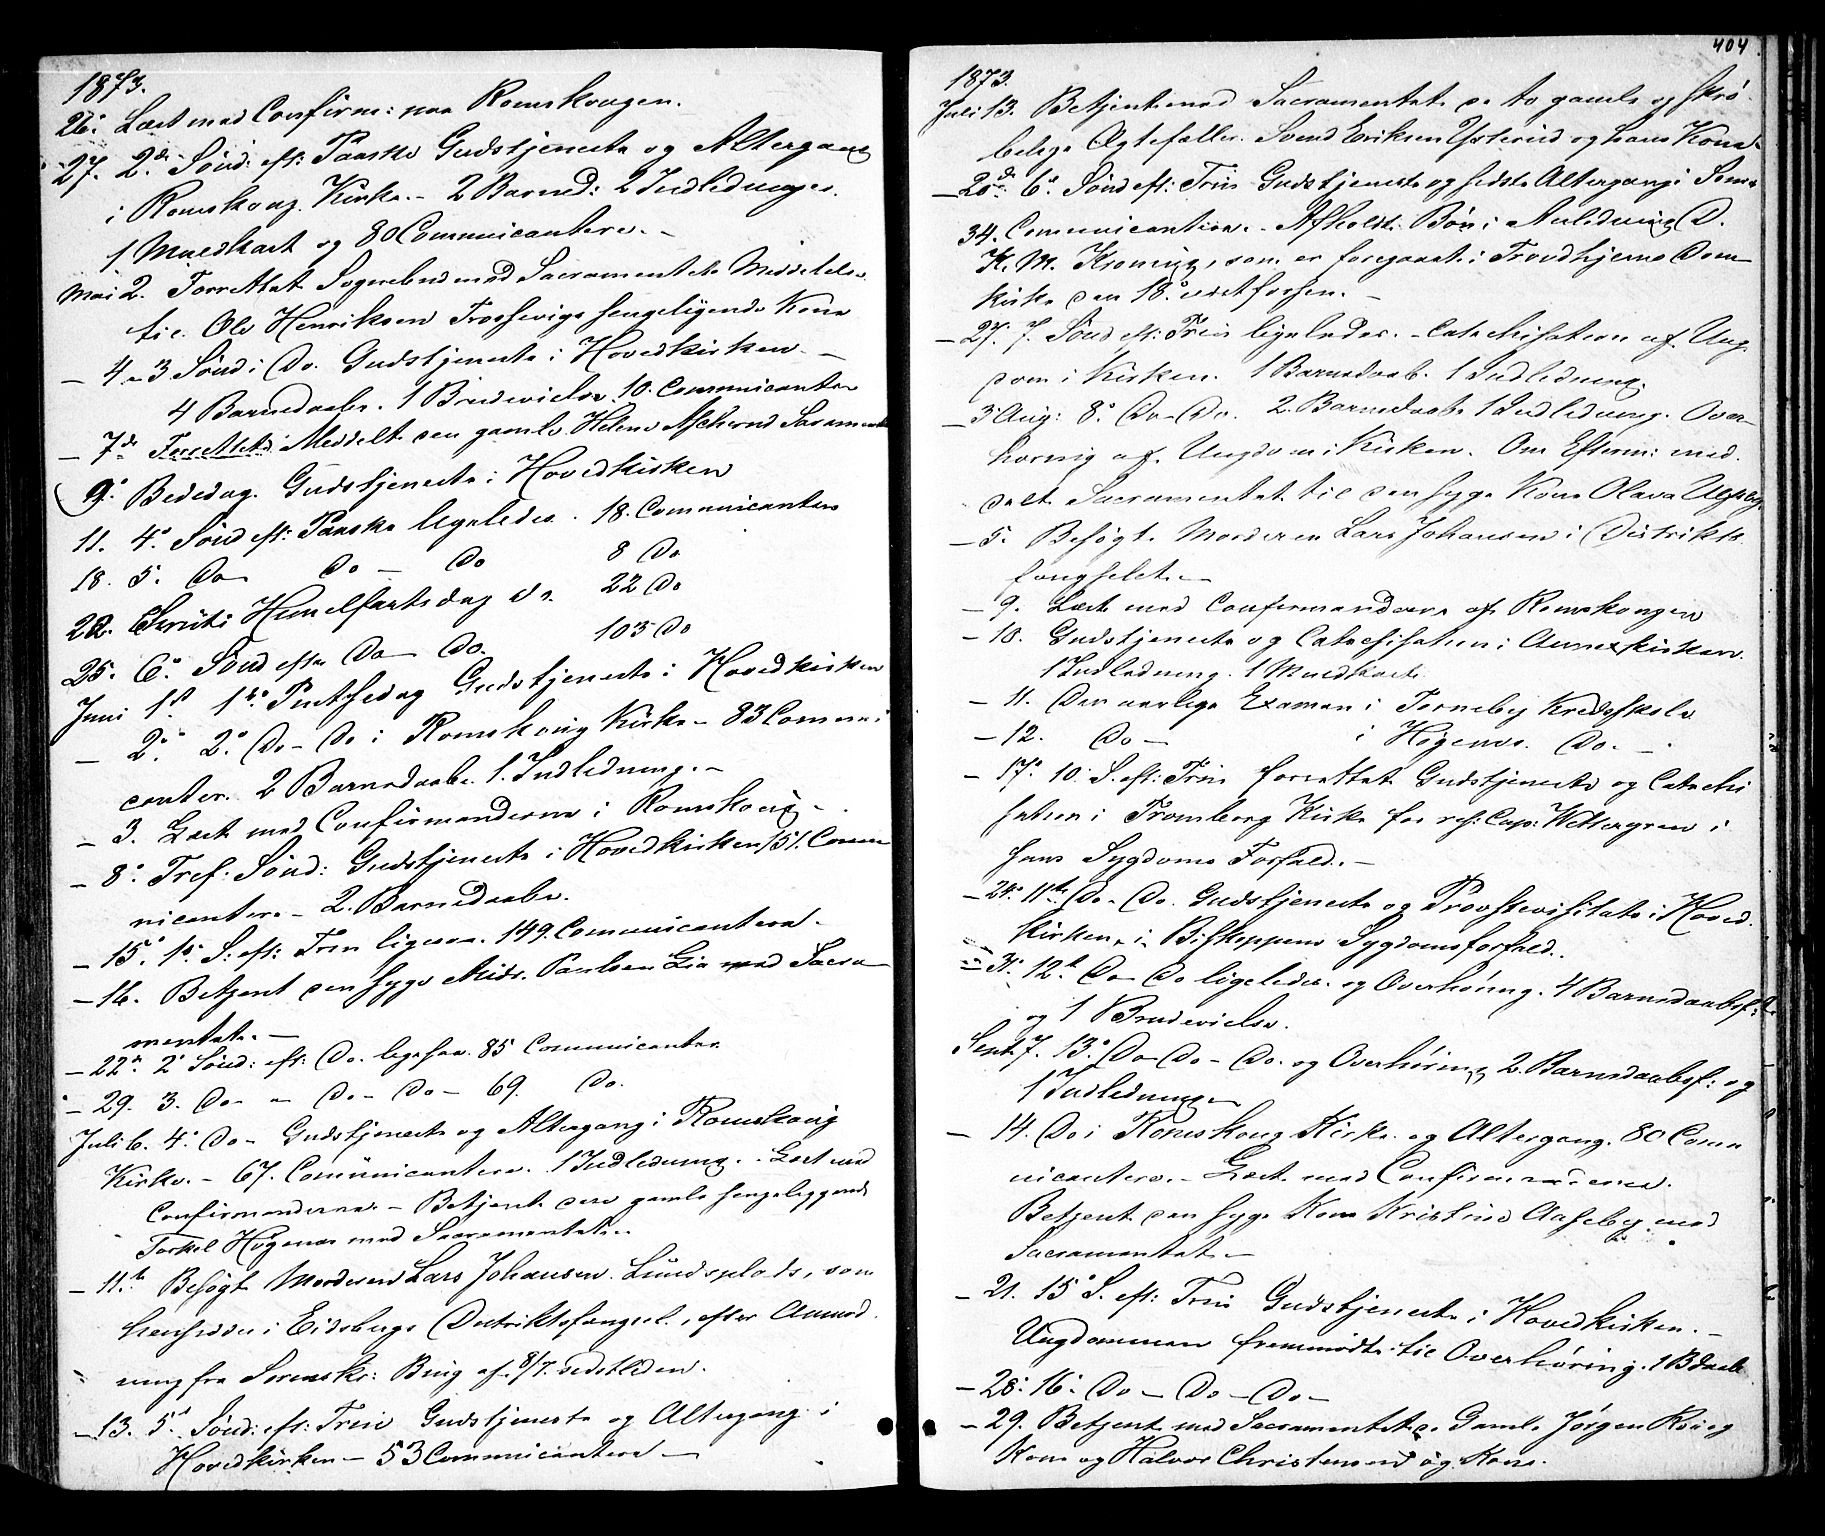 1873.
26. Læst med Confirm: paa Romskougen.
27. 2den Sønd: eft: Paaske Gudstjeneste og Altergang
i Romskoug Kirke. - 2 Barned: 2 Indledninger.
1 Muldkast og 80 Communicantere. -
Mai 2. Forrettet Sognebud med Sacramentets Meddelelse
til Ole Henriksen Trossevigs sengeligende Kone
- 4 - 3 Sønd: Do. Gudstjeneste i Hovedkirken. -
4 Barnedaabe. 1 Brudevielse. 10. Communicanter
- 7de Forrettet: Meddelt den gamle Helene Sacramentet
9. Bededag. Gudstjeneste i Hovedkirken
11. 4. Sønd eft: Paaske ligeledes. 18. Communicanter
18. 5. Do - Do - Do 8 Do
22. Christi Himelfartsdag do. 22 Do
25. 6. Sønd efter Do - Do. 103 Do
Juni 1st 1ste Pintsedag Gudstjeneste i Hovedkirken
- 2. 2. Do - Do i Romskoug Kirke - 83 Communi
canter. 2 Barnedaabe. 1. Indledning. -
- 3. Læst med Confirmanderne i Romskoug -
- 8. Tref: Sønd: Gudstjeneste i Hovedkirken 151. Commu
nicantere - 2. Barnedaabe.
- 15. 1. S: eft: Trin ligesaa. 149. Communicantere. -
- 16. Betjent den syge Paulsen Lia med Sacra
mentet. -
- 22. 2 Sønd: eft: Do. ligesaa. 85 Communicanter
- 29. 3. Do - Do - Do - 69. Do.
Juli 6. 4. Do - Gudstjeneste og Altergang i Romskoug
Kirke. - 67. Communicantere. 1 Indledning. - Læst med
Confirmanderne. - Betjent den gamle sengeliggende
Torkel Høgenæs med Sacramentet.
- 11te Besøgt Morderen Lars Johansen Lundsplads, som
hensidder i Eidsbergs Districtsfængsel, efter Anmod
ning fra Sorensk: Bing af 8/7. sidstleden.
- 13. 5. Sønd: eft: Trin Gudstjeneste og Altergang i
Hovedkirken - 53 Communicantere -
404
1873.
Juli 13. Betjent med Sacramentet de to gamle og skrø
belige Ægtefæller Svend Eriksen Ysterud og hans Kone
- 20de 6. Sønd eft: Trin Gudstjeneste og sidste Altergang i Som
34. Communicantere. - Afholdt Bøn i Anledning D.
K. M. Kroning, som er foregaaet i Trondhjems Dom-
kirke den 18. næstforhen. -
- 27. 7. Sønd eft: Trin ligeledes. - Catechisation af Ung
dom i Kirken. 1 Barnedaab. 1 Indledning.
- 3 Aug: 8. Do - Do. 2. Barnedaabe 1 Indledning. Over
høring af Ungdom i Kirken. Om Efterm: med
delt Sacramentet til den syge Kone Olava
- 5. Besøgt Morderen Lars Johansen i Distrikts
fængselet. -
- 9. Læst med Confirmanderne af Romskougen
- 10. Gudstjeneste og Catechisation i Annexkirken.
1 Indledning. 1 Muldkast.
- 11. Den aarlige Examen i Torneby Kredsskole
- 12. Do - i Høgenæs. Do. -
- 17. 10. S. eft: Trin forrettet Gudstjeneste og Catechi
sation i Tromborg Kirke for res: Cap: Wettergren i
hans Sygdoms Forfald. -
- 24. 11te Do - Do. Gudstjeneste og Provstevisitats i Hoved
kirken, i Biskoppens Sygdomsforfald.
- 31. 12te Do - Do ligeledes og Overhøring. 4 Barnedaabsf:
og 1 Brudevielse.
Sept. 7. 13. Do - Do - Do. og Overhøring 2. Barnedaabsf: og
1 Indledning
- 14. Do i Romskoug Kirke og Altergang. 80 Comu
nicantere. - Læst med Confirmanderne.
Betjent den syge Kone Kristine Aaseby med
Sacramentet. -
- 21. 15. S. eft: Trin Gudstjeneste i Hovedkirken. -
Ungdommen fremmødte til Overhøring. 1 Bdaab
- 28. 16. Do - Do - Do -
- 29. Betjent med Sacramentet Gamle Jørgen
Kone og Halvor Christensen og Kone.